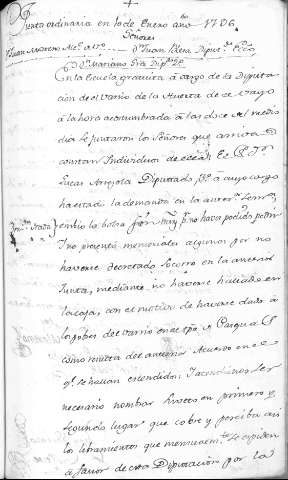 Junta ordinaria en 10 de Enero año 1786
Señores
Juan Moreno Alc.e 1.º D.n Juan Perea Dipu.do Ecco
D.n Mariano Dip.do
En la Escuela gratuita à cargo de la Diputa
cion de el Varrio de la Huerta de el vayo
à la hora acostumbrada à las doce de el medio
dia se juntaron los Señores que arriva
constan Individuos de
Lucas Diputado, à cuyo cargo
ha estado la demanda en la
la bolsa no haver podido pedir
Y no presentò memoriales algunos por no
haverse decretado socorro en la anterior
Junta, mediante no haverse hallado en
la caja, con el motivo de haverse dado à
los pobres del varrio en el tpo de Pasqua
como resulta del anterior Acuerdo en el
q.e se hallan estendidos: Y atendiendo ser
necesario nombrar sujeto en primero y
segundo lugar que cobre y perciva
los libramientos que mensualm.te se expiden
à favor de esta Diputacion por la